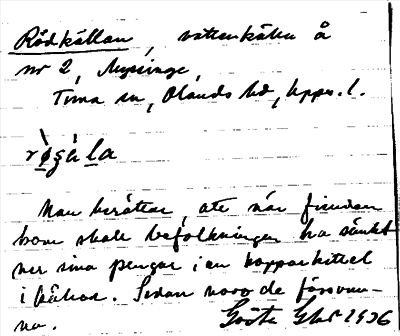 Rödkällan, vattenkälla å
nr 2, Myssinge,
Tuna sn, Olands hd, Upps. l.
rø̀gála
Man berättar, att när fienden
kom skola befolkningen ha sänkt
ner sina pengar i en kopparkittel
i källan. Sedan voro de försvun-
na.
Gösta 1936